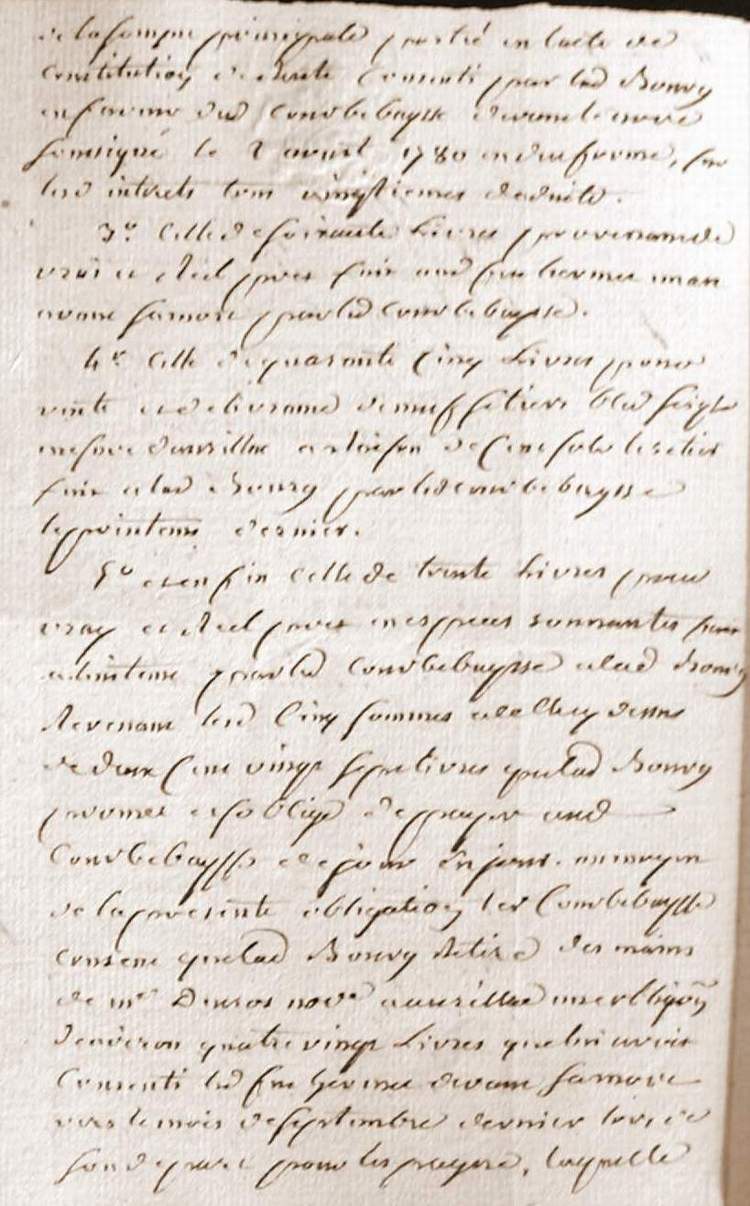 de la somme principale porté en lacte de
constitution de Rente Consenti par lad Boury
en faveur dud Courbebaysse devant le no.re
soussigné le 2 avril 1780 en due forme, sur
lesd interets trois vingtiemes deduits.
3.° Celle de soixante Livres provenant de
vray et Réel prét fait aud feu un an
avant sa mort par led Courbebaysse.
4.° Celle de quarante Cinq Livres pour
vente et delivrance de neuf setiers bled seigle
mesure daurillac a raison de Cent sols le setier
fait a lad Boury par led Courbebaysse
le printems dernier.
5.° et en fin Celle de trente Livres pour
vray et Réel prét en especes sonnantes fait
a linstant par led Courbebaysse a lad Boury
Revenant lesd Cinq sommes a celle cy dessus
de deux Cent vingt sept livres que lad Boury
promet et soblige de payer aud
Courbebaysse de jour en jour. au moyen
de la presente obligation led Courbebaysse
Consent que lad Boury Retire des mains
de m.e no.re a aurillac une oblig.on
denviron quatre vingt Livres que lui avoit
Consenti led feu devant sa mort
vers le mois de septembre dernier lors de
son depart pour les payer, laquelle